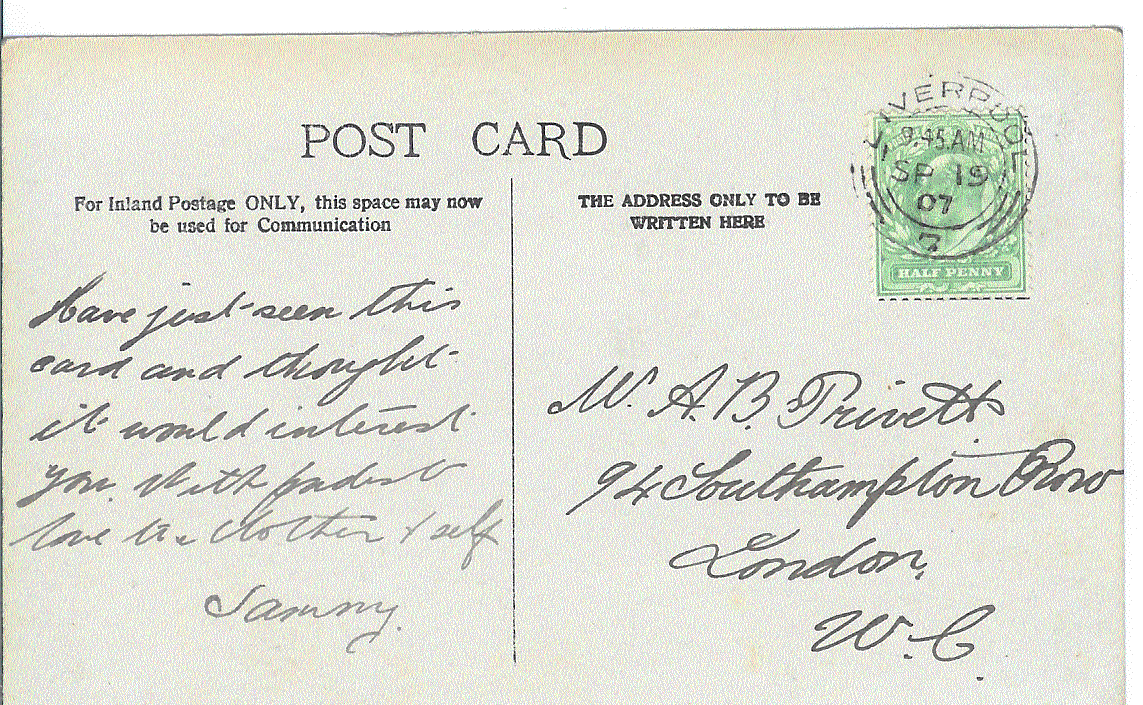 POST CARD
For Inland Postage ONLY, this space may now
be used for Communication
THE ADDRESS ONLY TO BE
WRITTEN HERE
LIVERPOOL
9.45 AM
SP 19
07
7
HALF PENNY
Have just seen this
card and thought
it would interest
you. With fondest
love to Mother & self
Sammy.
Mr. A. B. Privett
94 Southampton Row
London.
W.C.